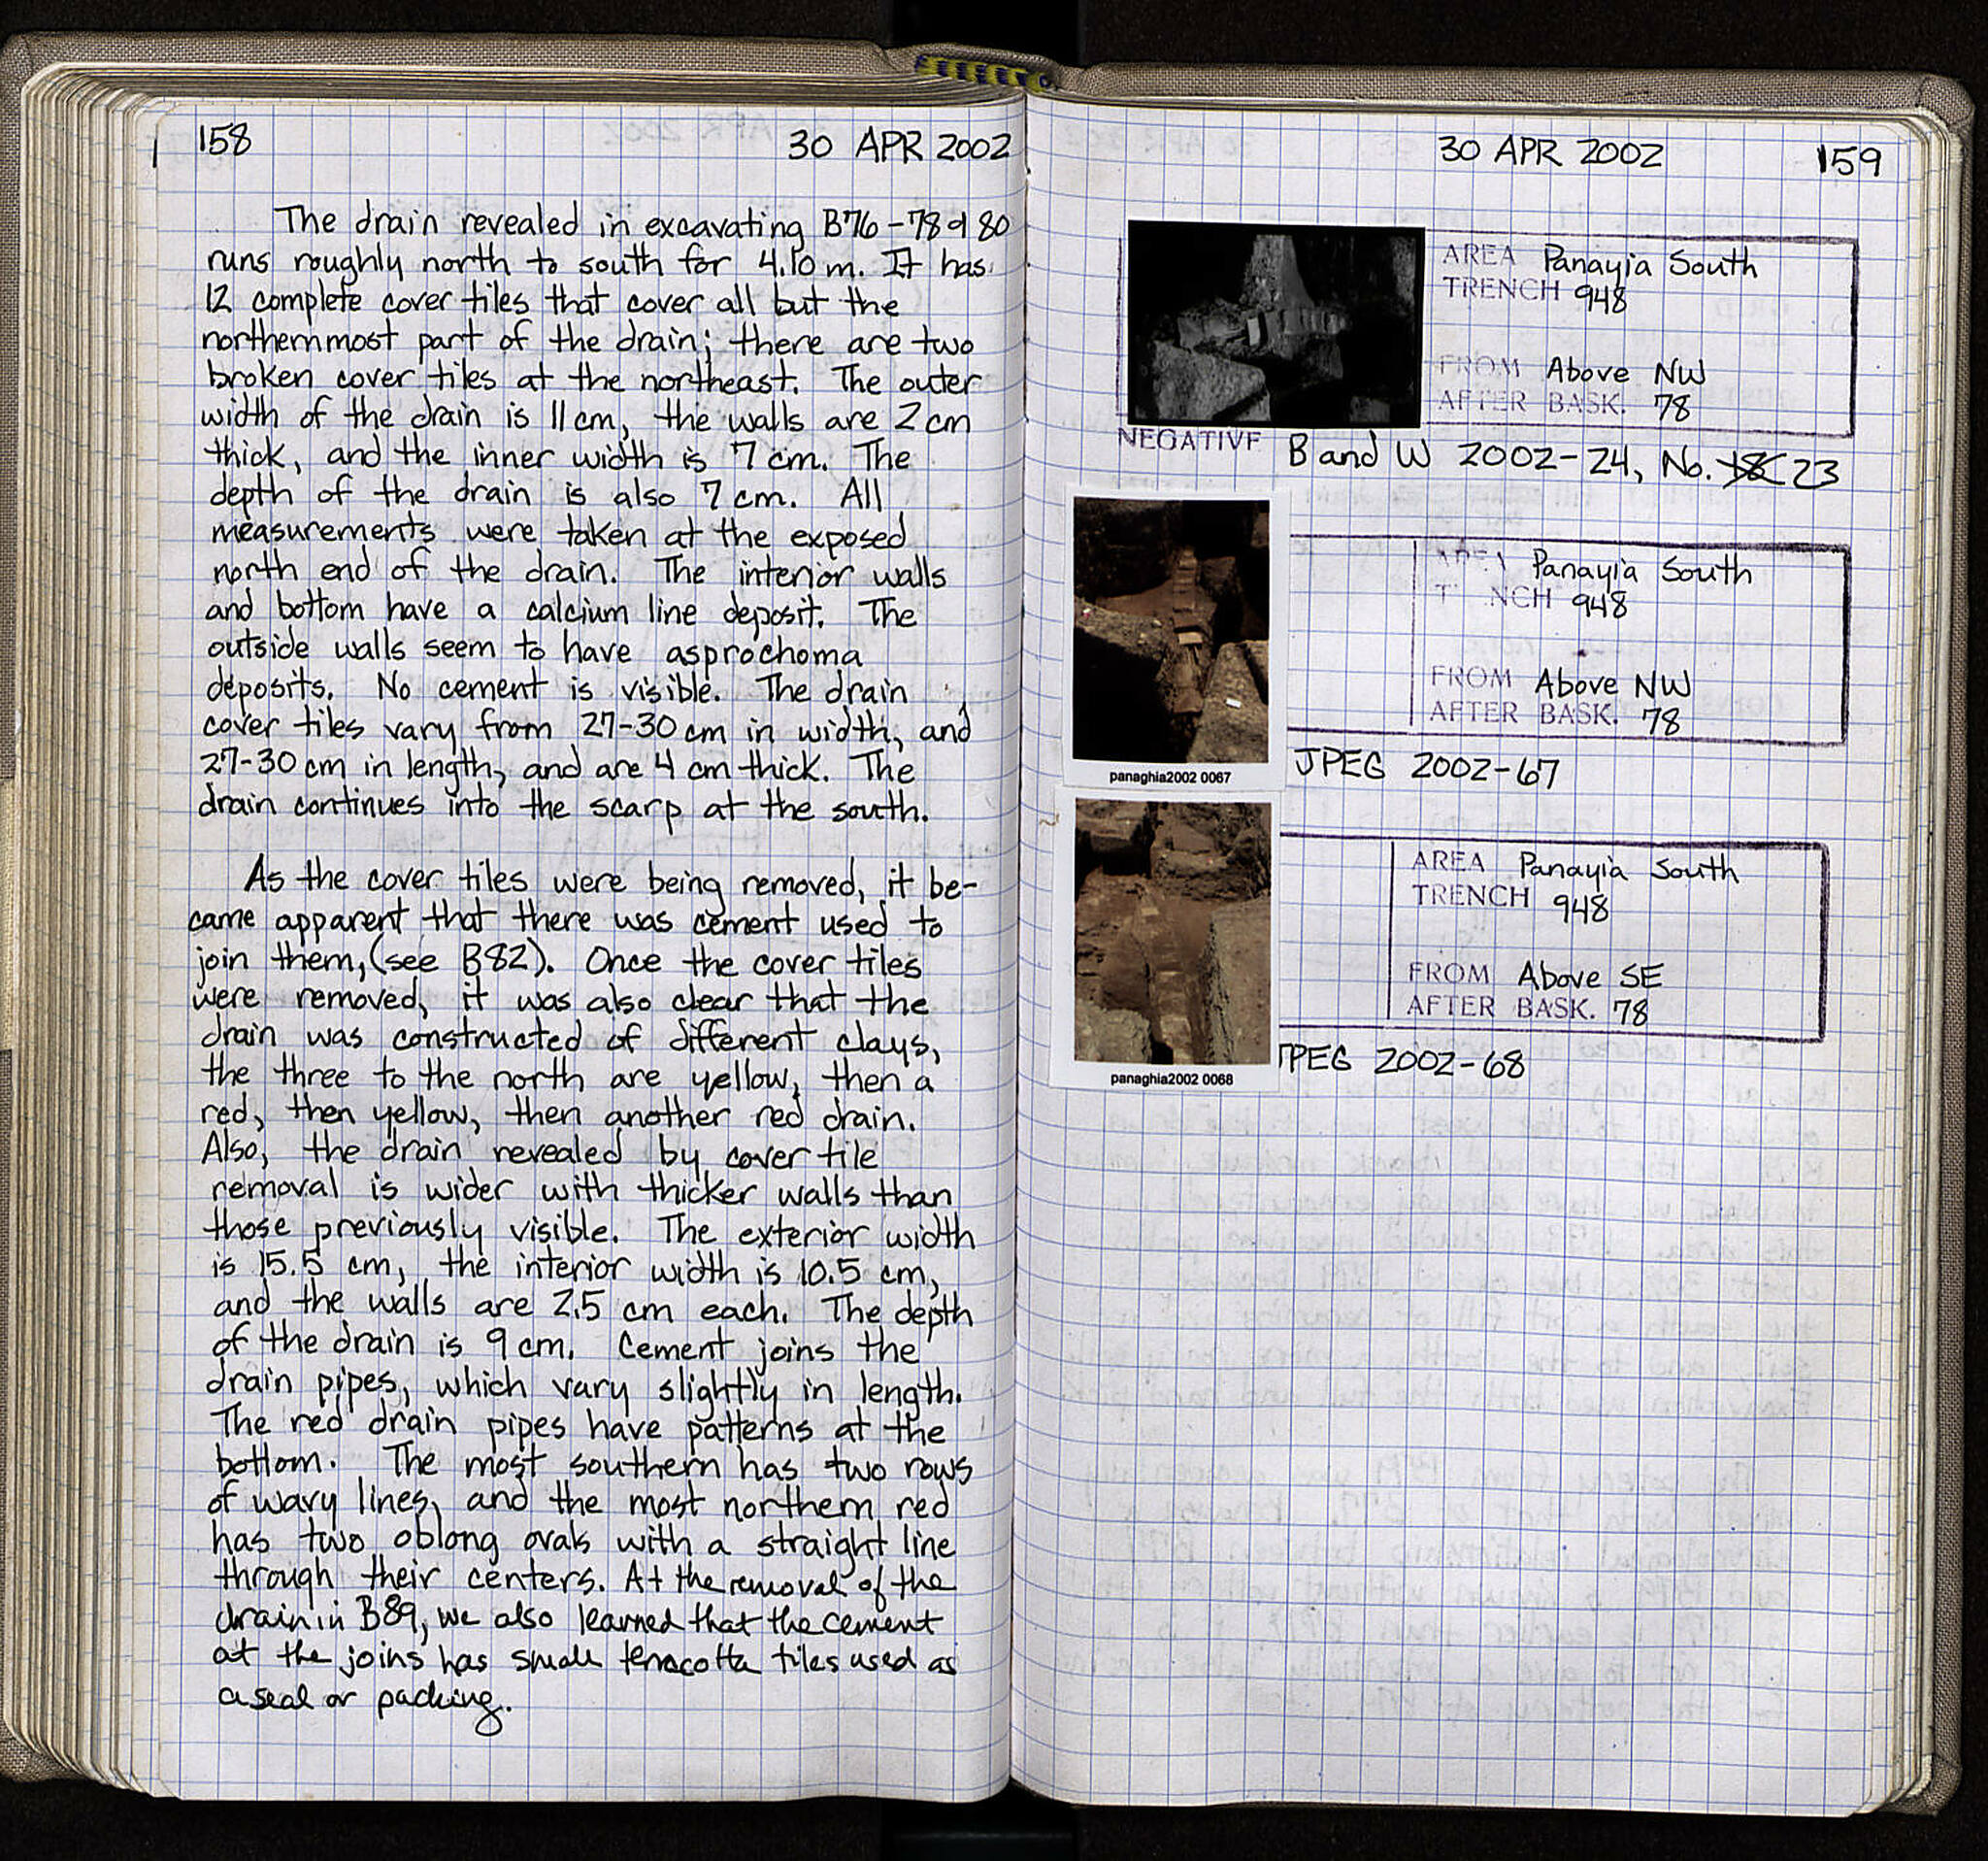 158
30 APR 2002
The drain revealed in excavating B76-78 & 80
runs roughly north to south for 4.10 m. It has
12 complete cover tiles that cover all but the
northernmost part of the drain; there are two
broken cover tiles at the northeast. The outer
width of the drain is 11 cm, the walls are 2 cm
thick, and the inner width is 7 cm. The
depth of the drain is also 7 cm. All
measurements were taken at the exposed
north end of the drain. The interior walls
and bottom have a calcium line deposit. The
outside walls seem to have asprochoma
deposits. No cement is visible. The drain
cover tiles vary from 27-30 cm in width, and
27-30 cm in length, and are 4 cm thick. The
drain continues into the scarp at the south.
As the cover tiles were being removed, it be-
came apparent that there was cement used to
join them, (see B82). Once the cover tiles
were removed, it was also clear that the
drain was constructed of different clays,
the three to the north are yellow, then a
red, then yellow, then another red drain.
Also, the drain revealed by cover tile
removal is wider with thicker walls than
those previously visible. The exterior width
is 15.5 cm, the interior width is 10.5 cm,
and the walls are 2.5 cm each. The depth
of the drain is 9 cm. Cement joins the
drain pipes, which vary slightly in length.
The red drain pipes have patterns at the
bottom. The most southern has two rows
of wavy lines, and the most northern red
has two oblong ovals with a straight line
through their centers. At the removal of the
drain in B89, we also learned that the cement
at the joins has small terracotta tiles used as
a seal or packing.
30 APR 2002
159
AREA Panayia South
TRENCH 948
FROM Above NW
AFTER BASK. 78
NEGATIVE B and W 2002-24, No. 23
AREA Panayia South
TRENCH 948
FROM Above NW
AFTER BASK. 78
panaghia2002 0067
JPEG 2002-67
AREA Panayia South
TRENCH 948
FROM Above SE
AFTER BASK. 78
panaghia2002 0068
JPEG 2002-68